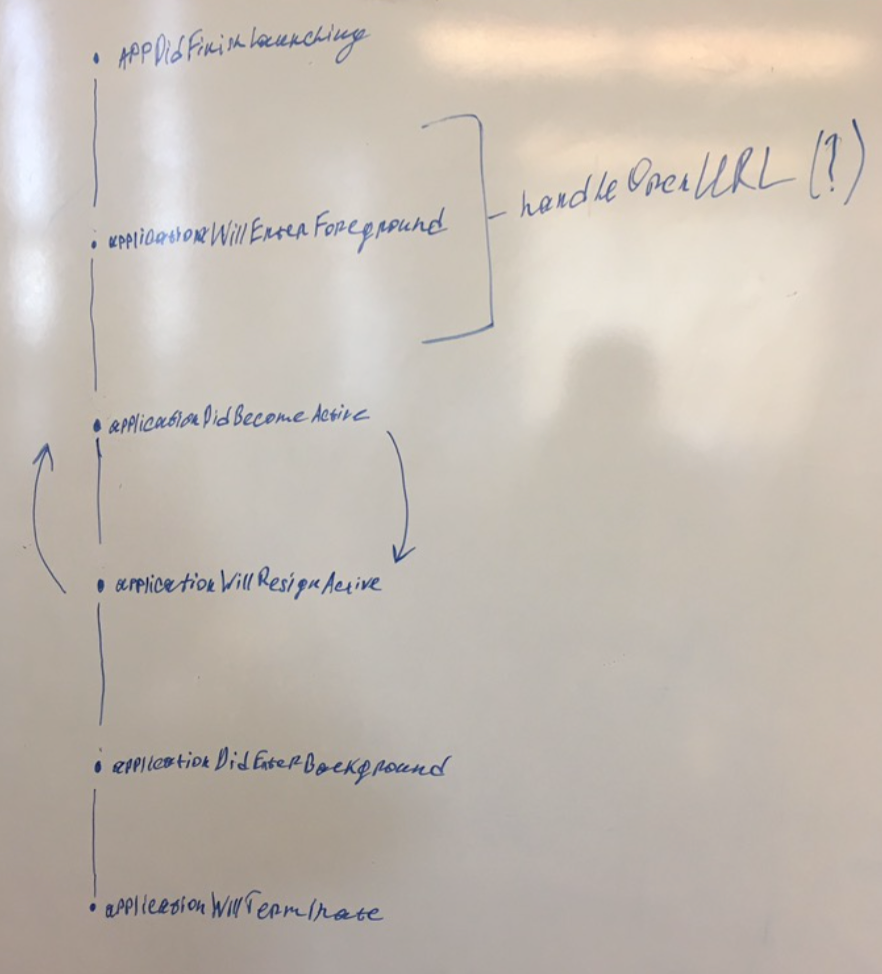 APPDidFinishLaunching
handleOpenURL (?)
applicationWillEnterForeground
applicationDidBecomeActive
applicationWillResignActive
applicationDidEnterBackground
applicationWillTerminate